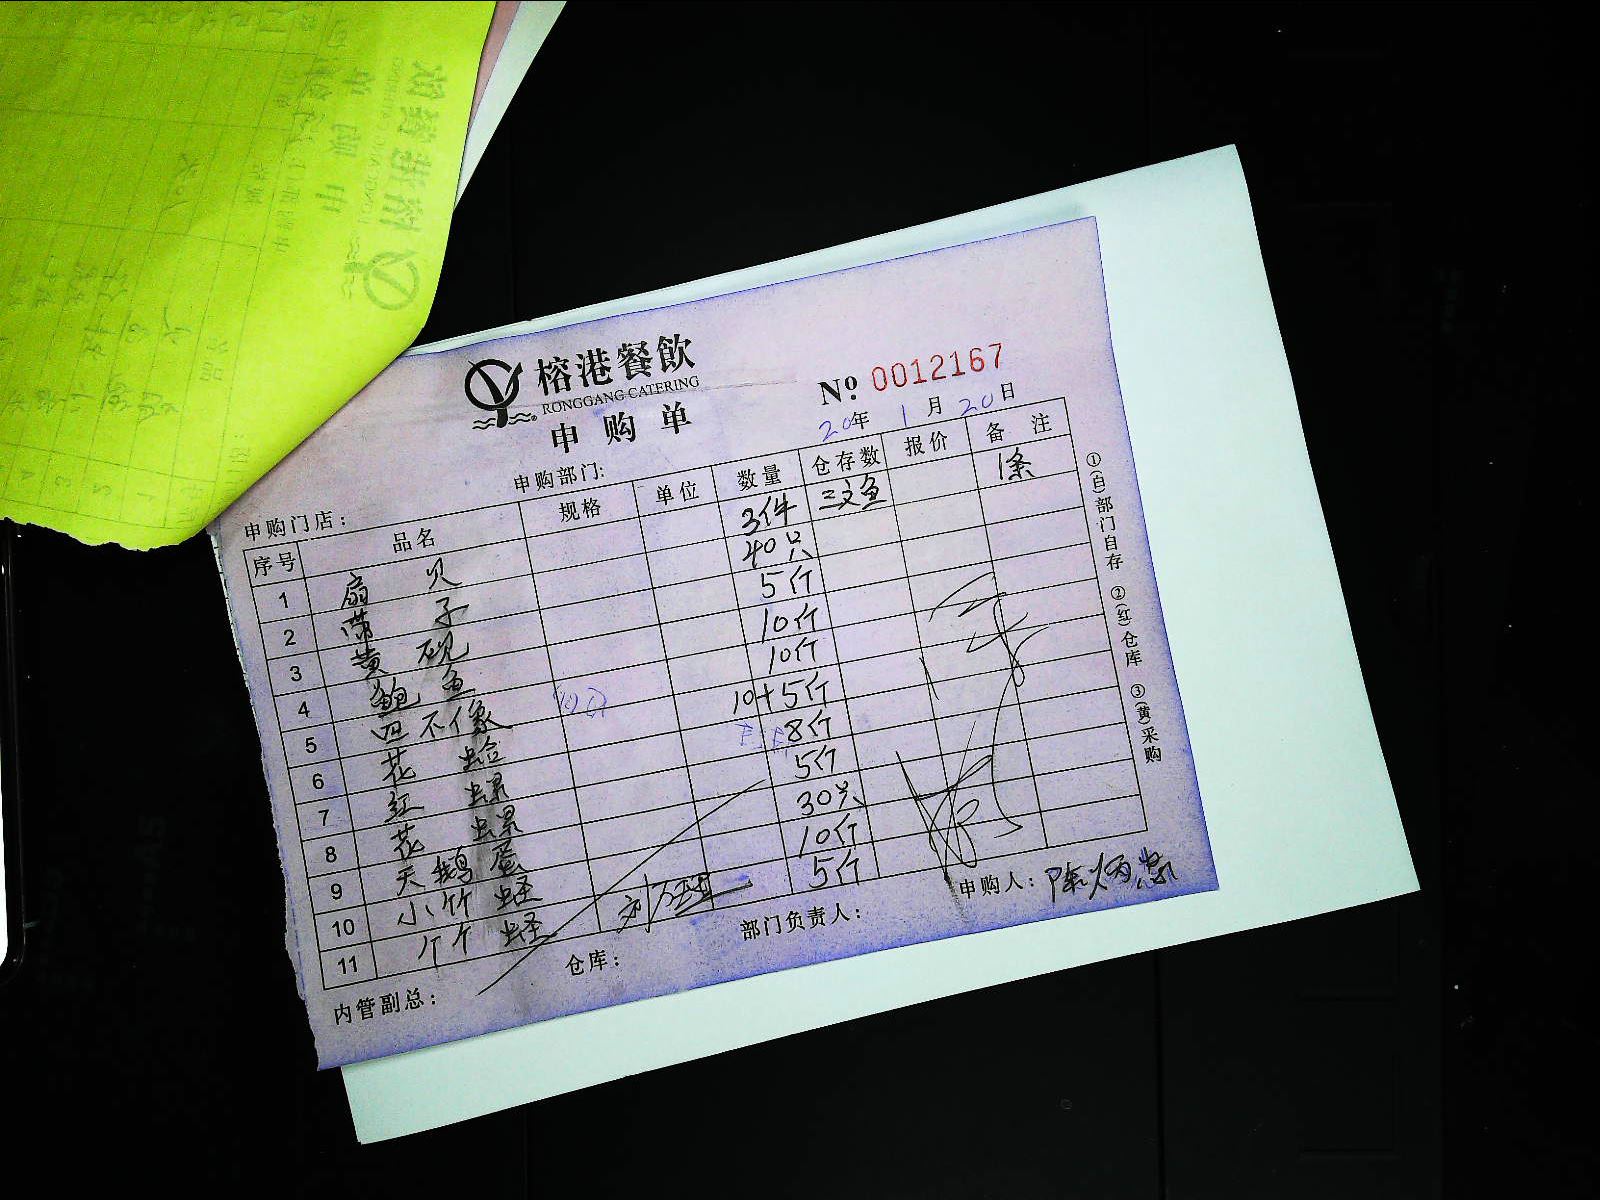 榕港餐飲
RONGGANG CATERING
申购单
№ 0012167
20年 1月 20日
申购部门:
申购门店:
序号 品名 规格 单位 数量 仓存数 报价 备注
1 扇贝 3件 三文鱼 1条
2 带子 40只
3 黄砚 5斤
4 鲍鱼 10斤
5 四不像 10斤
6 花蛤 10+5斤
7 红螺 8斤
8 花螺 5斤
9 天鹅蛋 30只
10 小竹蛏 10斤
11 蛏 5斤
内管副总: 仓库: 部门负责人: 申购人:
①(白)部门自存 ②(红)仓库 ③(黄)采购